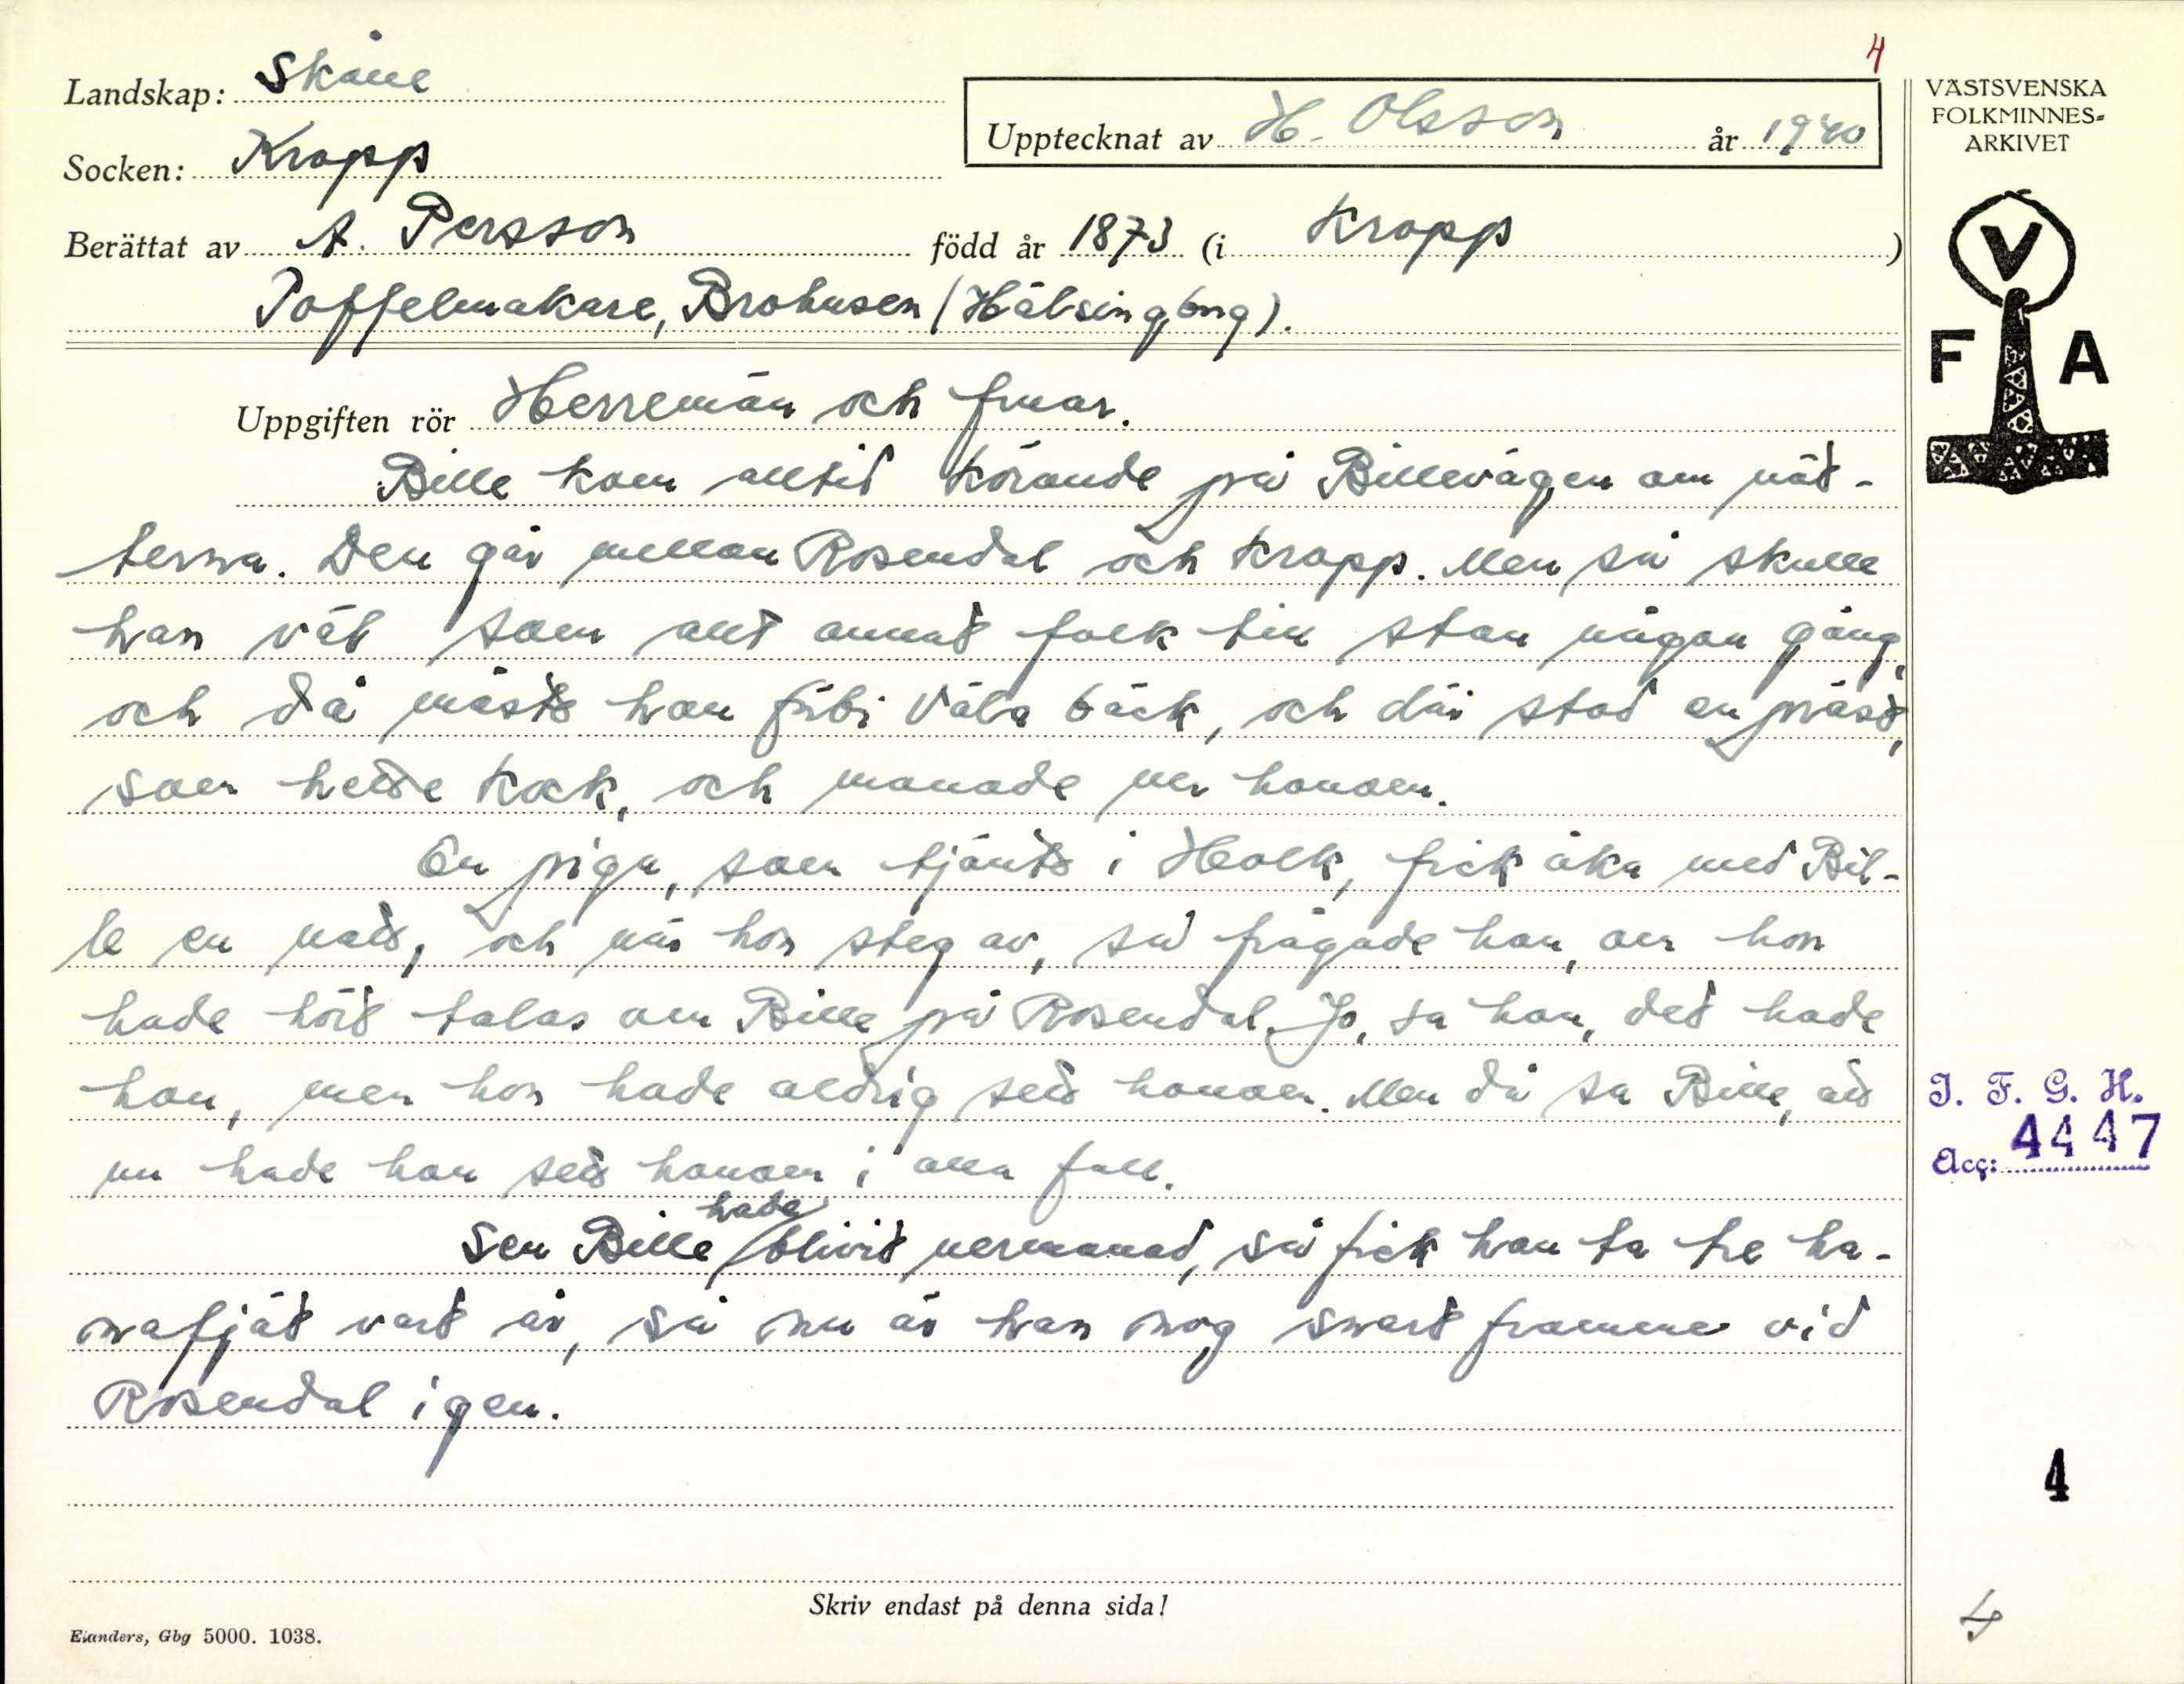 4
Landskap: Skåne
Upptecknat av H. Olsson år 1940
Socken: Kropp
Berättat av A. Persson född år 1873 (i Kropp)
Toffelmakare, Brohusen (Hälsingborg).
Uppgiften rör Herremän och fruar.
Bille kom alltid körande på Billevägen om nät-
terna. Den går mellan Rosendal och Kropp. Men så skulle
han väl som allt annat folk till stan någon gång,
och då måste han förbi Väla bäck, och där stod en präst,
som hette Kock, och manade ner honom.
En piga, som tjänte i Holk, fick åka med Bil-
le en natt, och när hon steg av, så frågade han, om hon
hade hört talas om Bille på Rosendal. Jo, sa hon, det hade
hon, men hon hade aldrig sett honom. Men då sa Bille, att
nu hade hon sett honom i alla fall.
Sen Bille hade blivit nermanad, så fick han ta tre ha-
nafjät vart år, så nu är han nog snart framme vid
Rosendal igen.
Skriv endast på denna sida!
Elanders, Gbg 5000. 1038.
VÄSTSVENSKA
FOLKMINNES-
ARKIVET
V
F A
I. F. G. H.
Acc: 4447
4
4